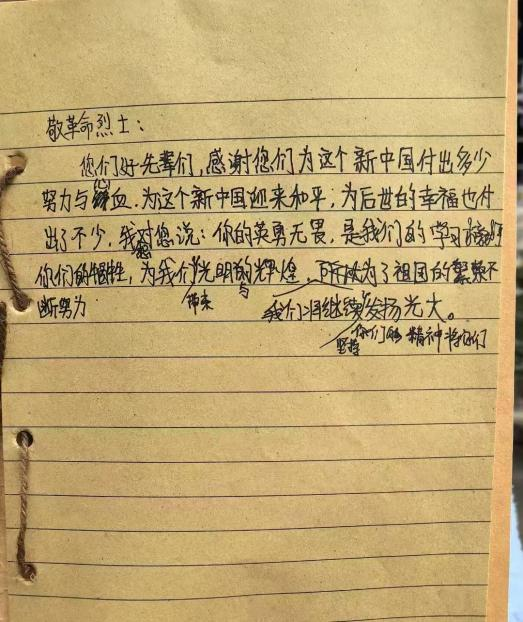 敬革命烈士：
您们好先辈们，感谢您们为这个新中国付出多少
努力与心血．为这个新中国迎来和平；为后世的幸福也付
出了不少，我想对您说：你的英勇无畏，是我们的学习榜样
你们的牺牲，为我们带来光明的与辉煌，所以为了祖国的繁荣不
断努力 我们将继续发扬光大。
坚持你们的精神将你们